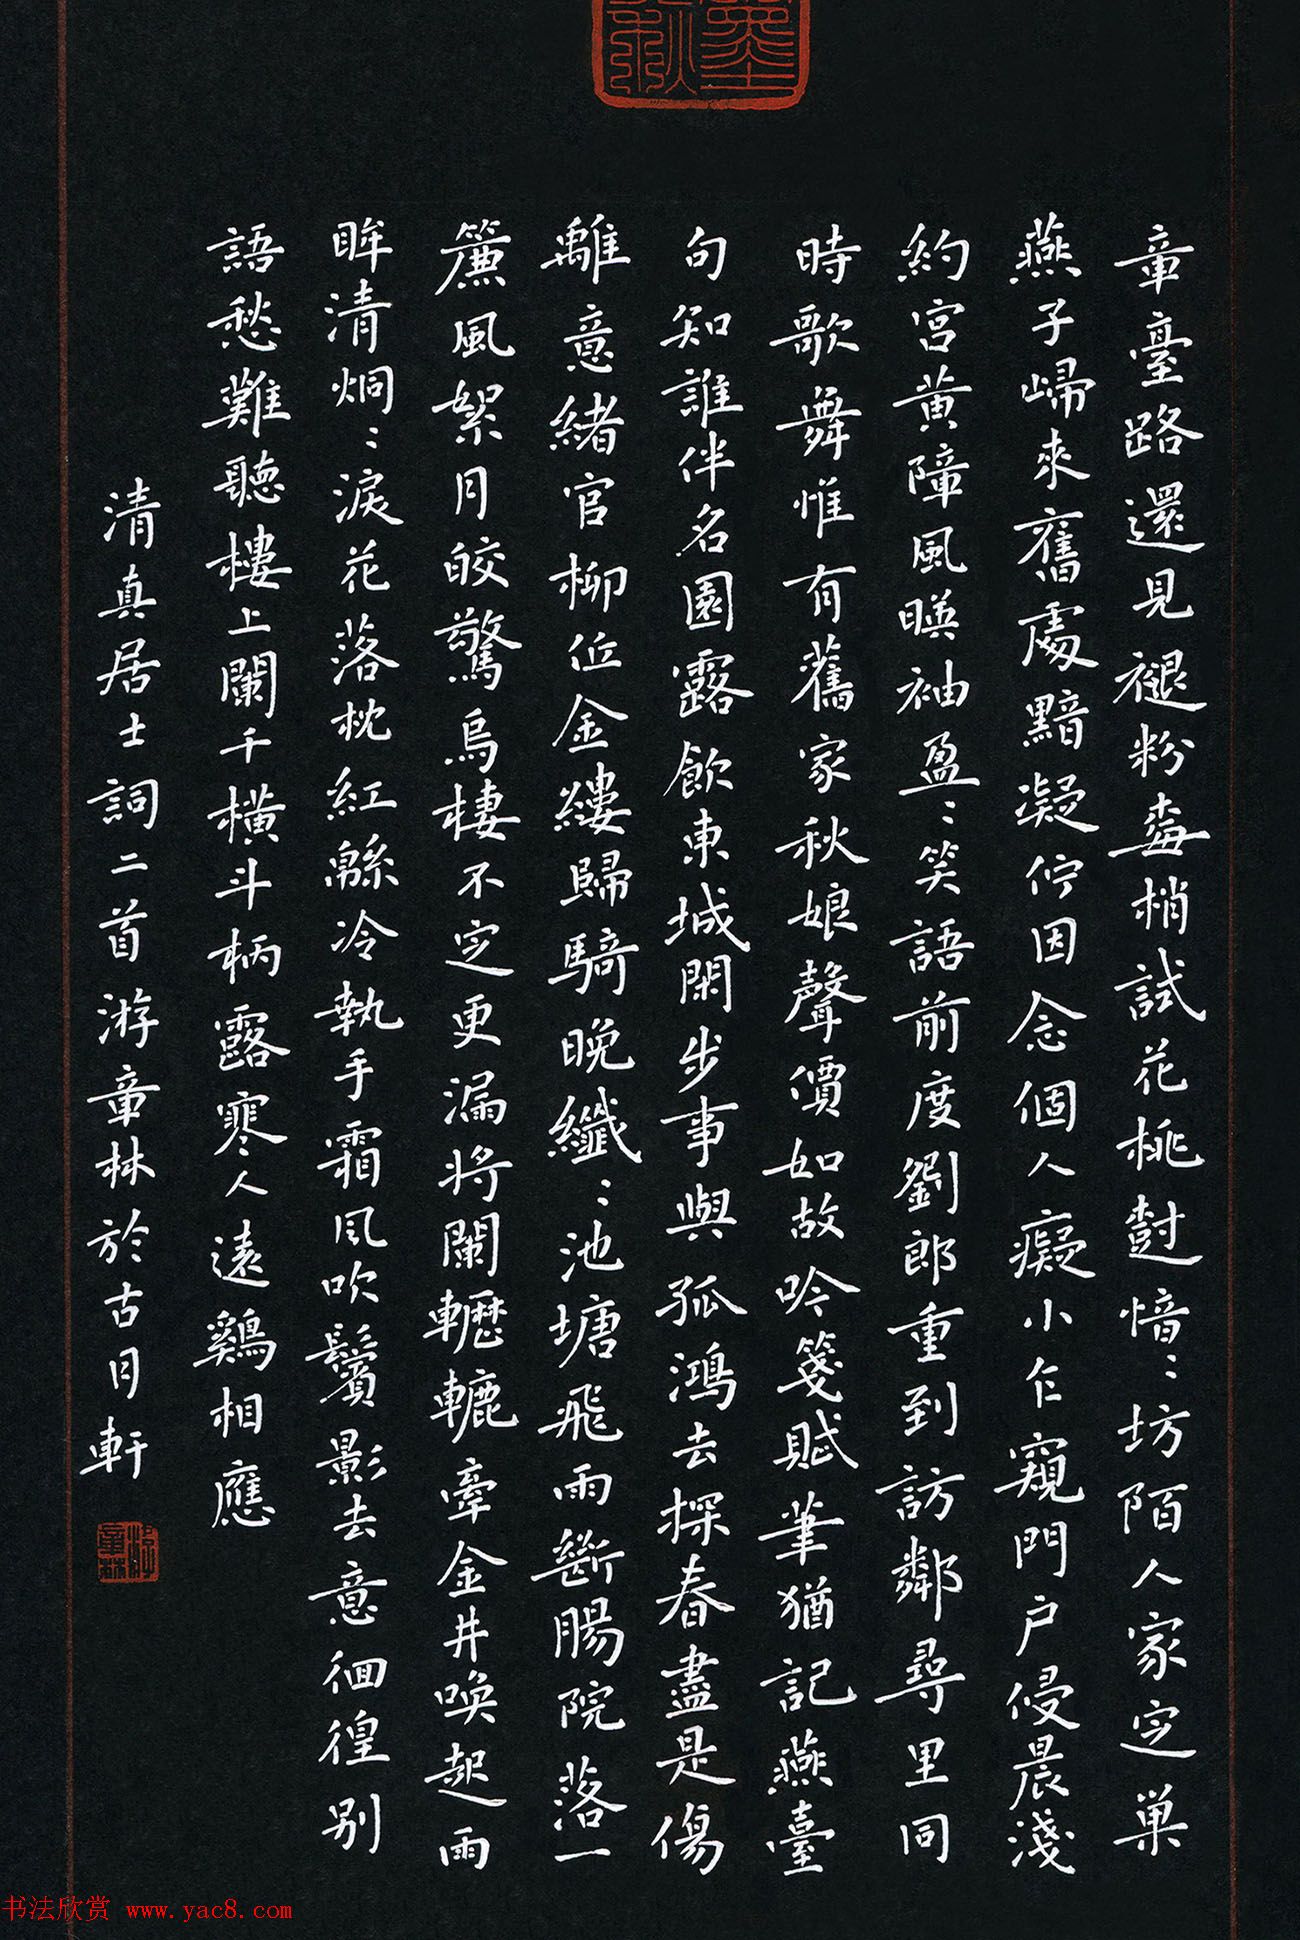 章臺路還見褪粉梅梢試花桃樹愔〻坊陌人家定巢
燕子歸來舊處黯凝佇因念個人癡小乍窺門戶侵晨淺
約宮黃障風暎袖盈〻笑語前度劉郎重到訪鄰尋里同
時歌舞惟有舊家秋娘聲價如故吟箋賦筆猶記燕臺
句知誰伴名園露飲東城閑步事與孤鴻去探春盡是傷
離意緒官柳低金縷歸騎晚纖〻池塘飛雨斷腸院落一
簾風絮月皎驚烏棲不定更漏將闌轣轆牽金井喚起兩
眸清炯〻淚花落枕紅緜冷執手霜風吹鬢影去意徊徨別
語愁難聽樓上闌干橫斗柄露寒人遠鷄相應
清真居士詞二首游童林於古月軒
书法欣赏 www.yac8.com